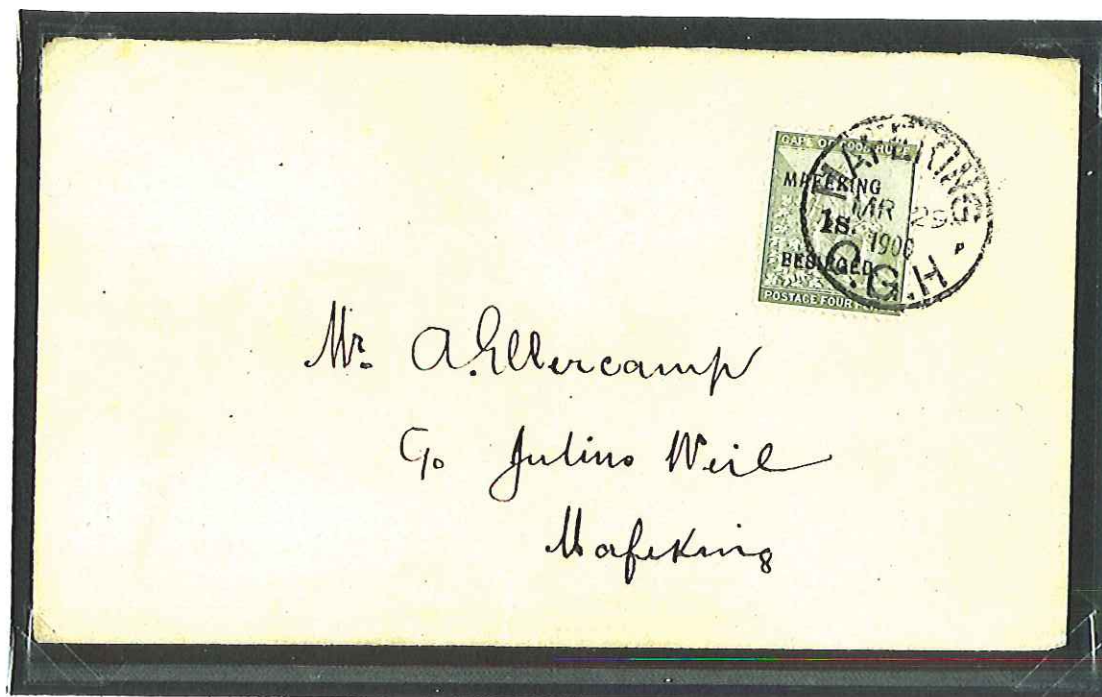 CAPE OF GOOD HOPE
MAFEKING
1s.
BESIEGED
POSTAGE FOUR
MAFEKING
MR 29
1900
C.G.H
Mr. A. Ellercamp
C/o Julius Weil
Mafeking